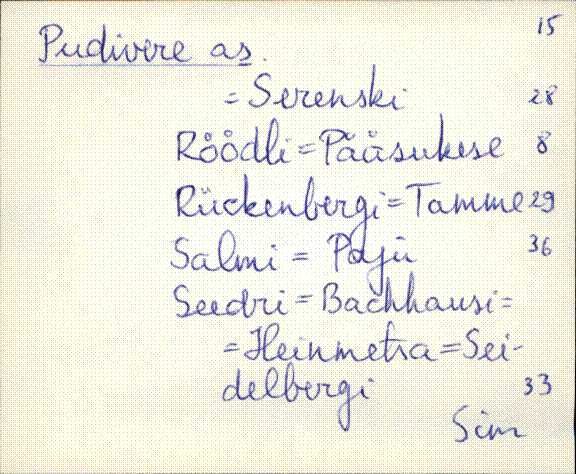 15
Pudivere as.
= Serenski 28
Röödli = Pääsukese 8
Rückenbergi = Tamme 29
Salmi = Paju 36
Seedri = Bachhausi =
= Heinmetsa = Sei-
delbergi 33
Sim